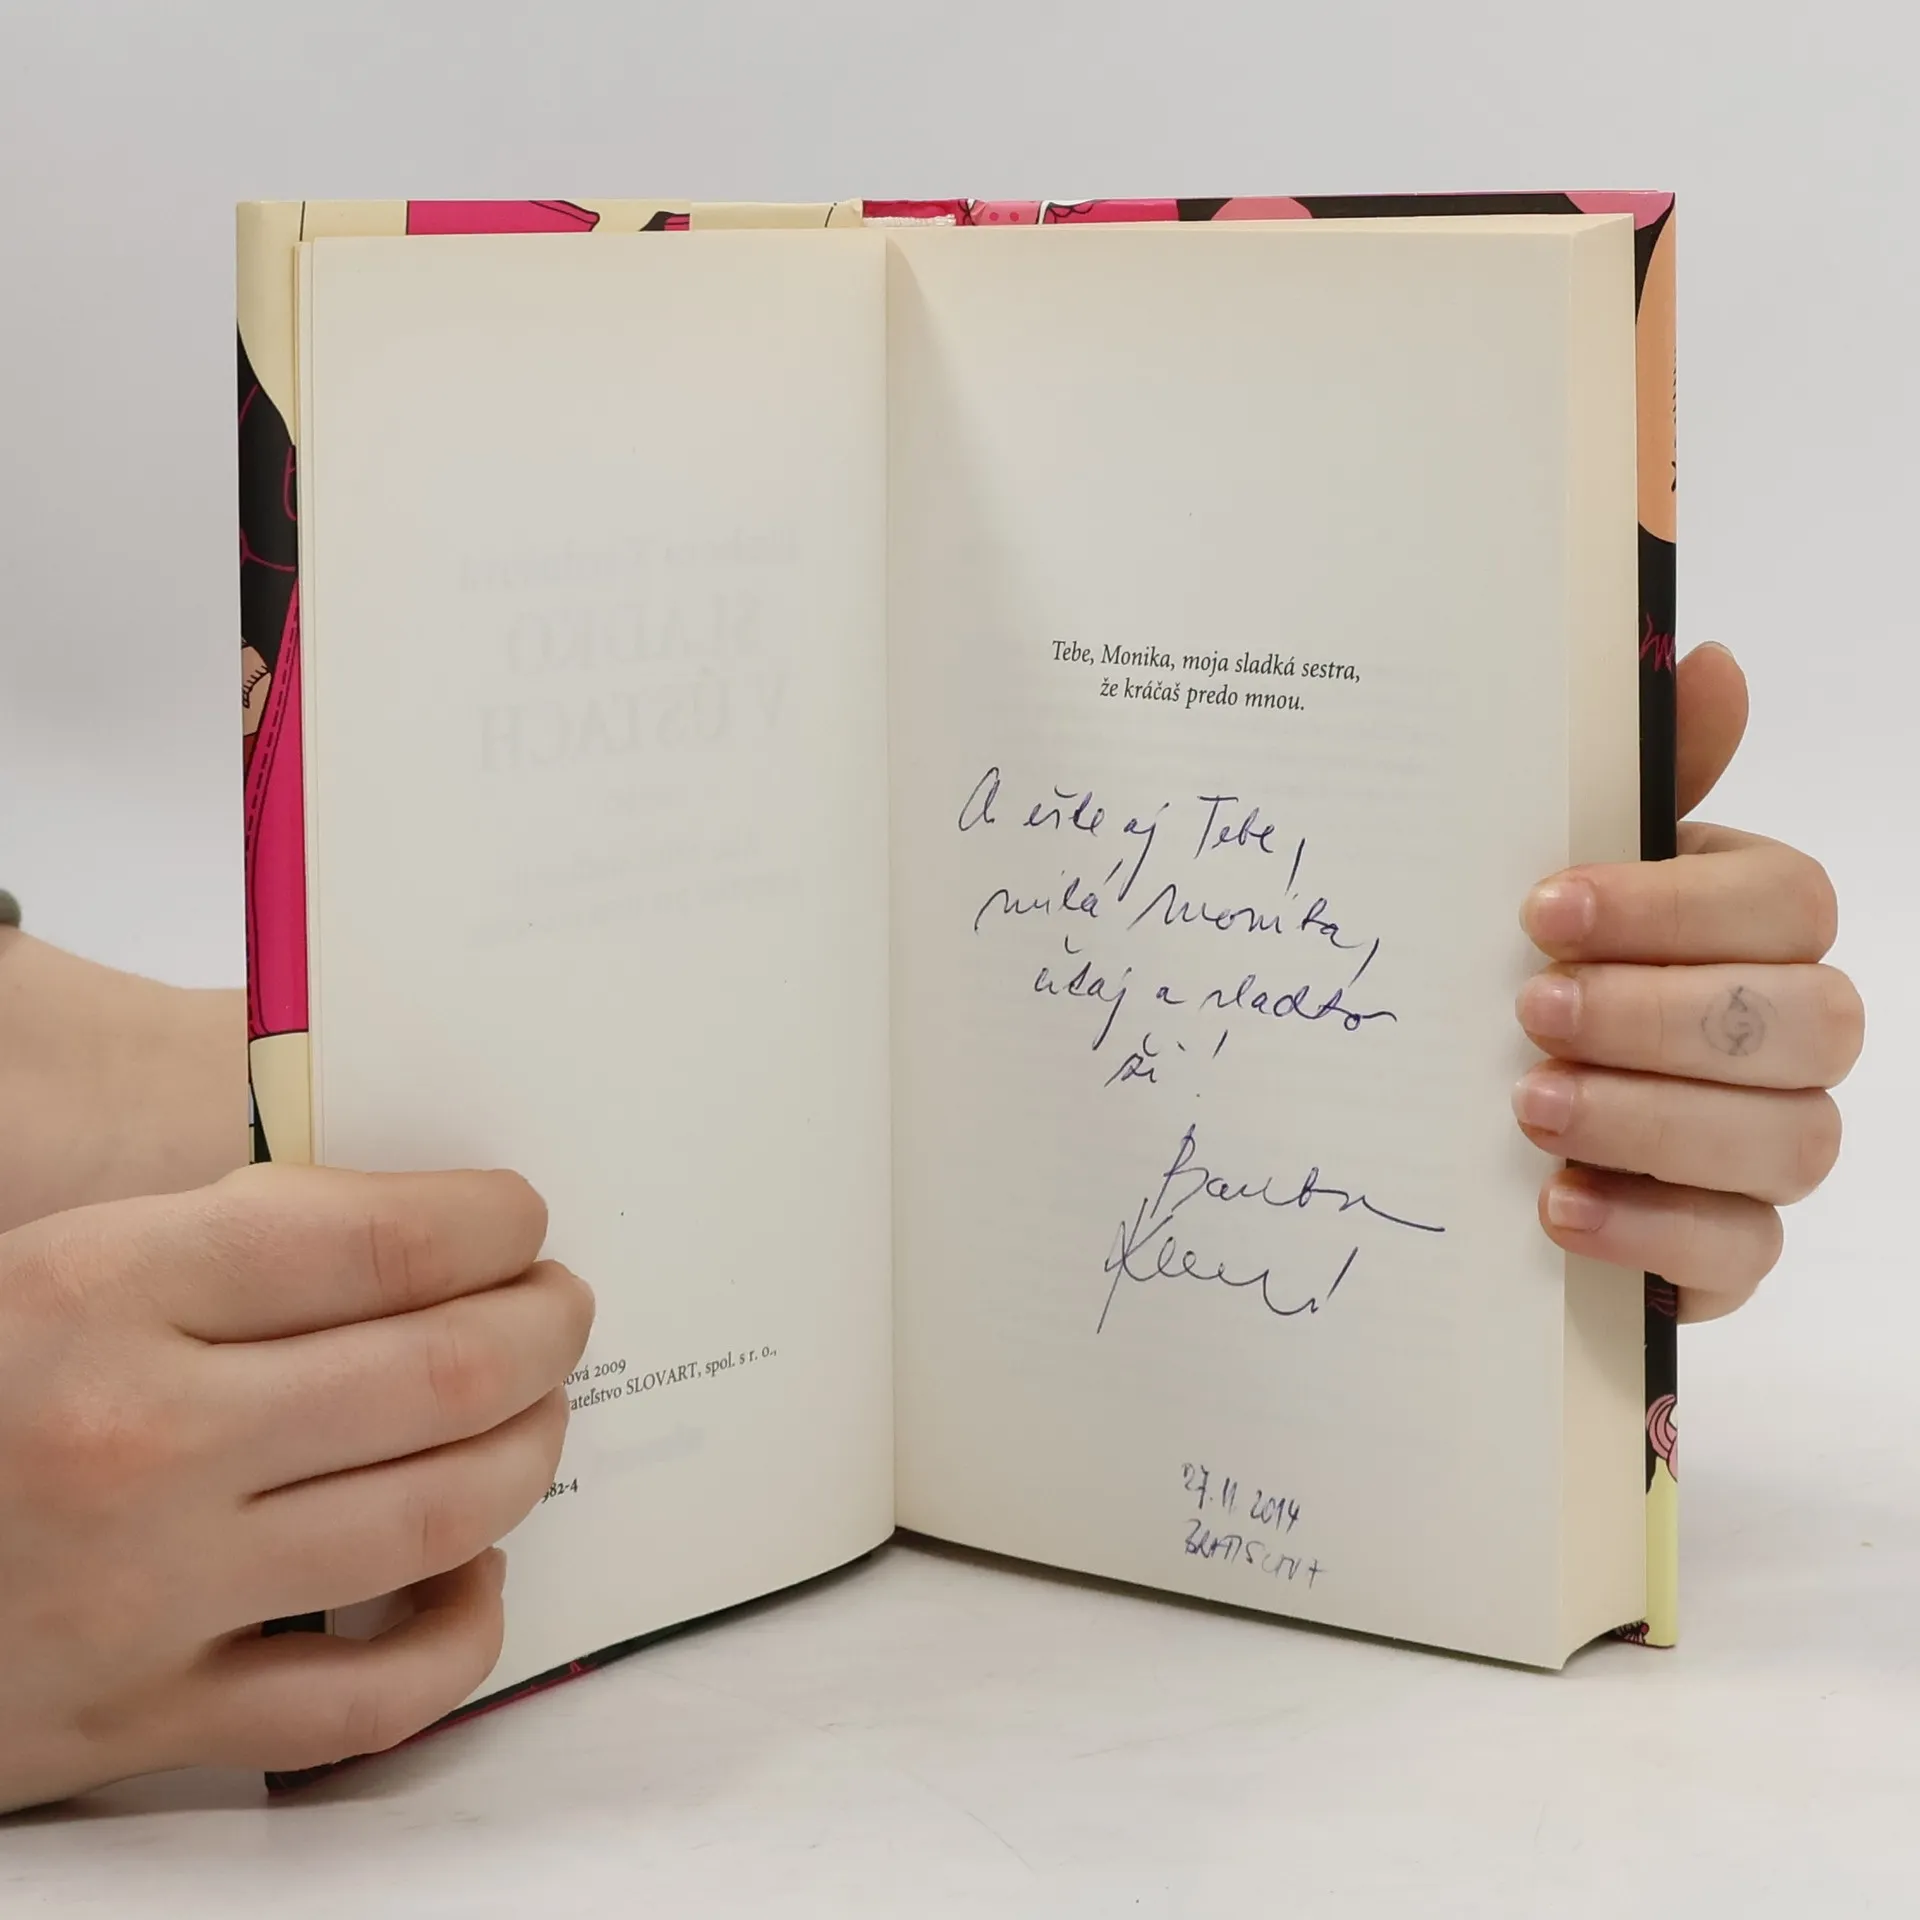 ová 2009
ateľstvo SLOVART, spol. s r. o.,
982-4
Tebe, Monika, moja sladká sestra,
že kráčaš predo mnou.
A ešte aj Tebe,
milá Monika,
čítaj a sladko
ži!
27.11.2014
BRATISLAVA